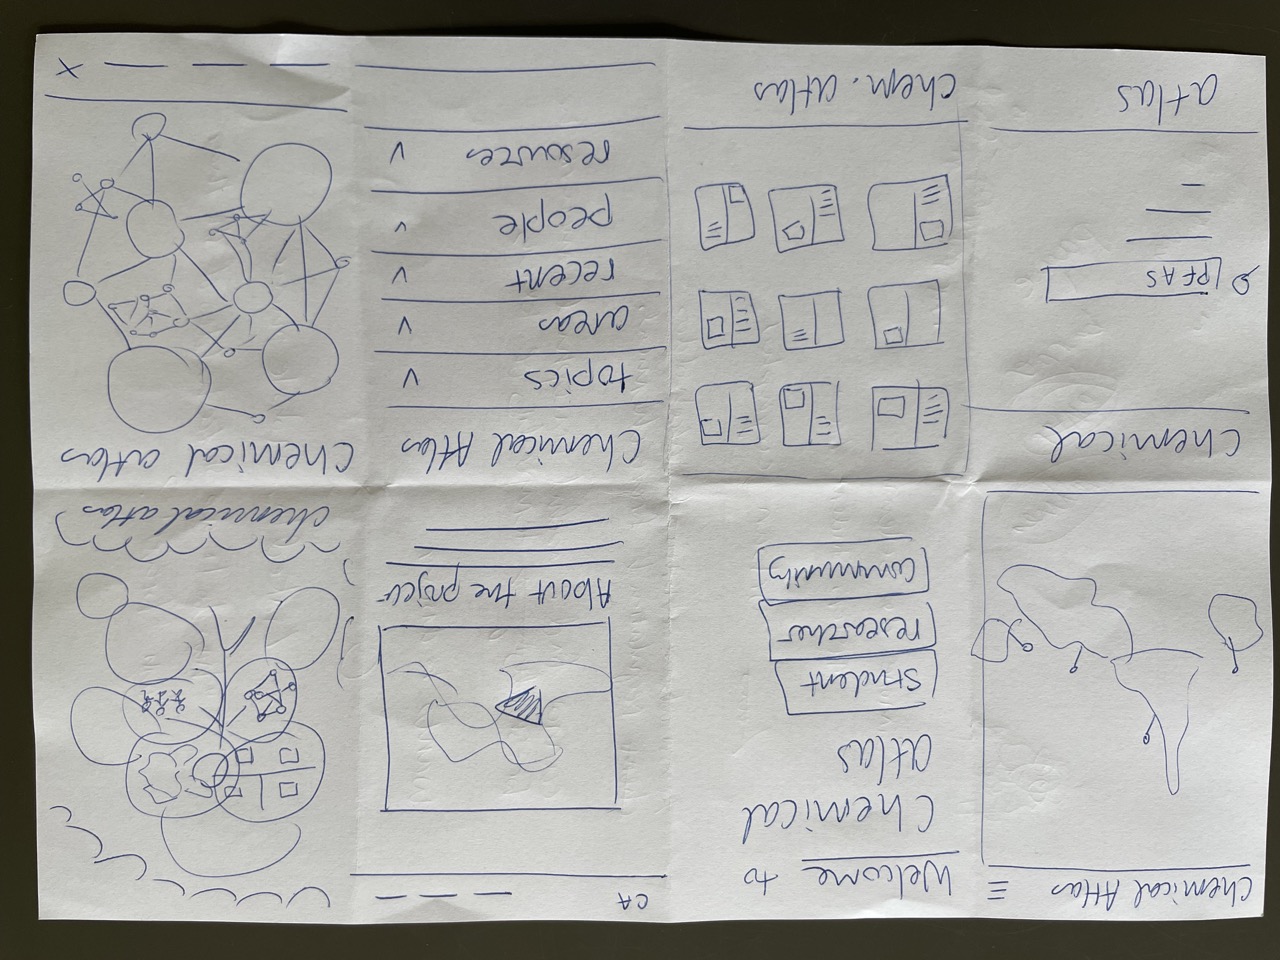 Chemical Atlas
Welcome to
Chemical
atlas
student
researcher
community
CA
About the project
chemical atlas
Chemical
PFAS
atlas
chem. atlas
Chemical Atlas
topics
areas
recent
people
resources
Chemical atlas
X